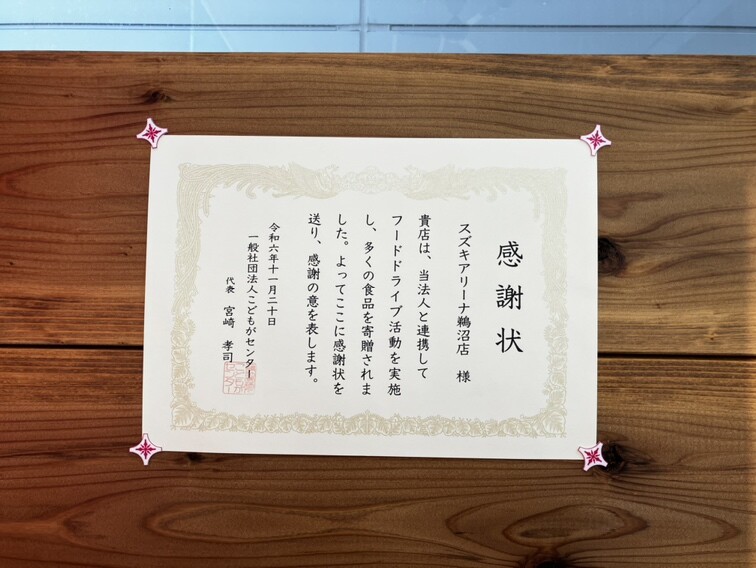 感謝状
スズキアリーナ鵜沼店 様
貴店は、当法人と連携して
フードドライブ活動を実施
し、多くの食品を寄贈されま
した。よってここに感謝状を
送り、感謝の意を表します。
令和六年十一月二十日
一般社団法人こどもがセンター
代表 宮崎 孝司